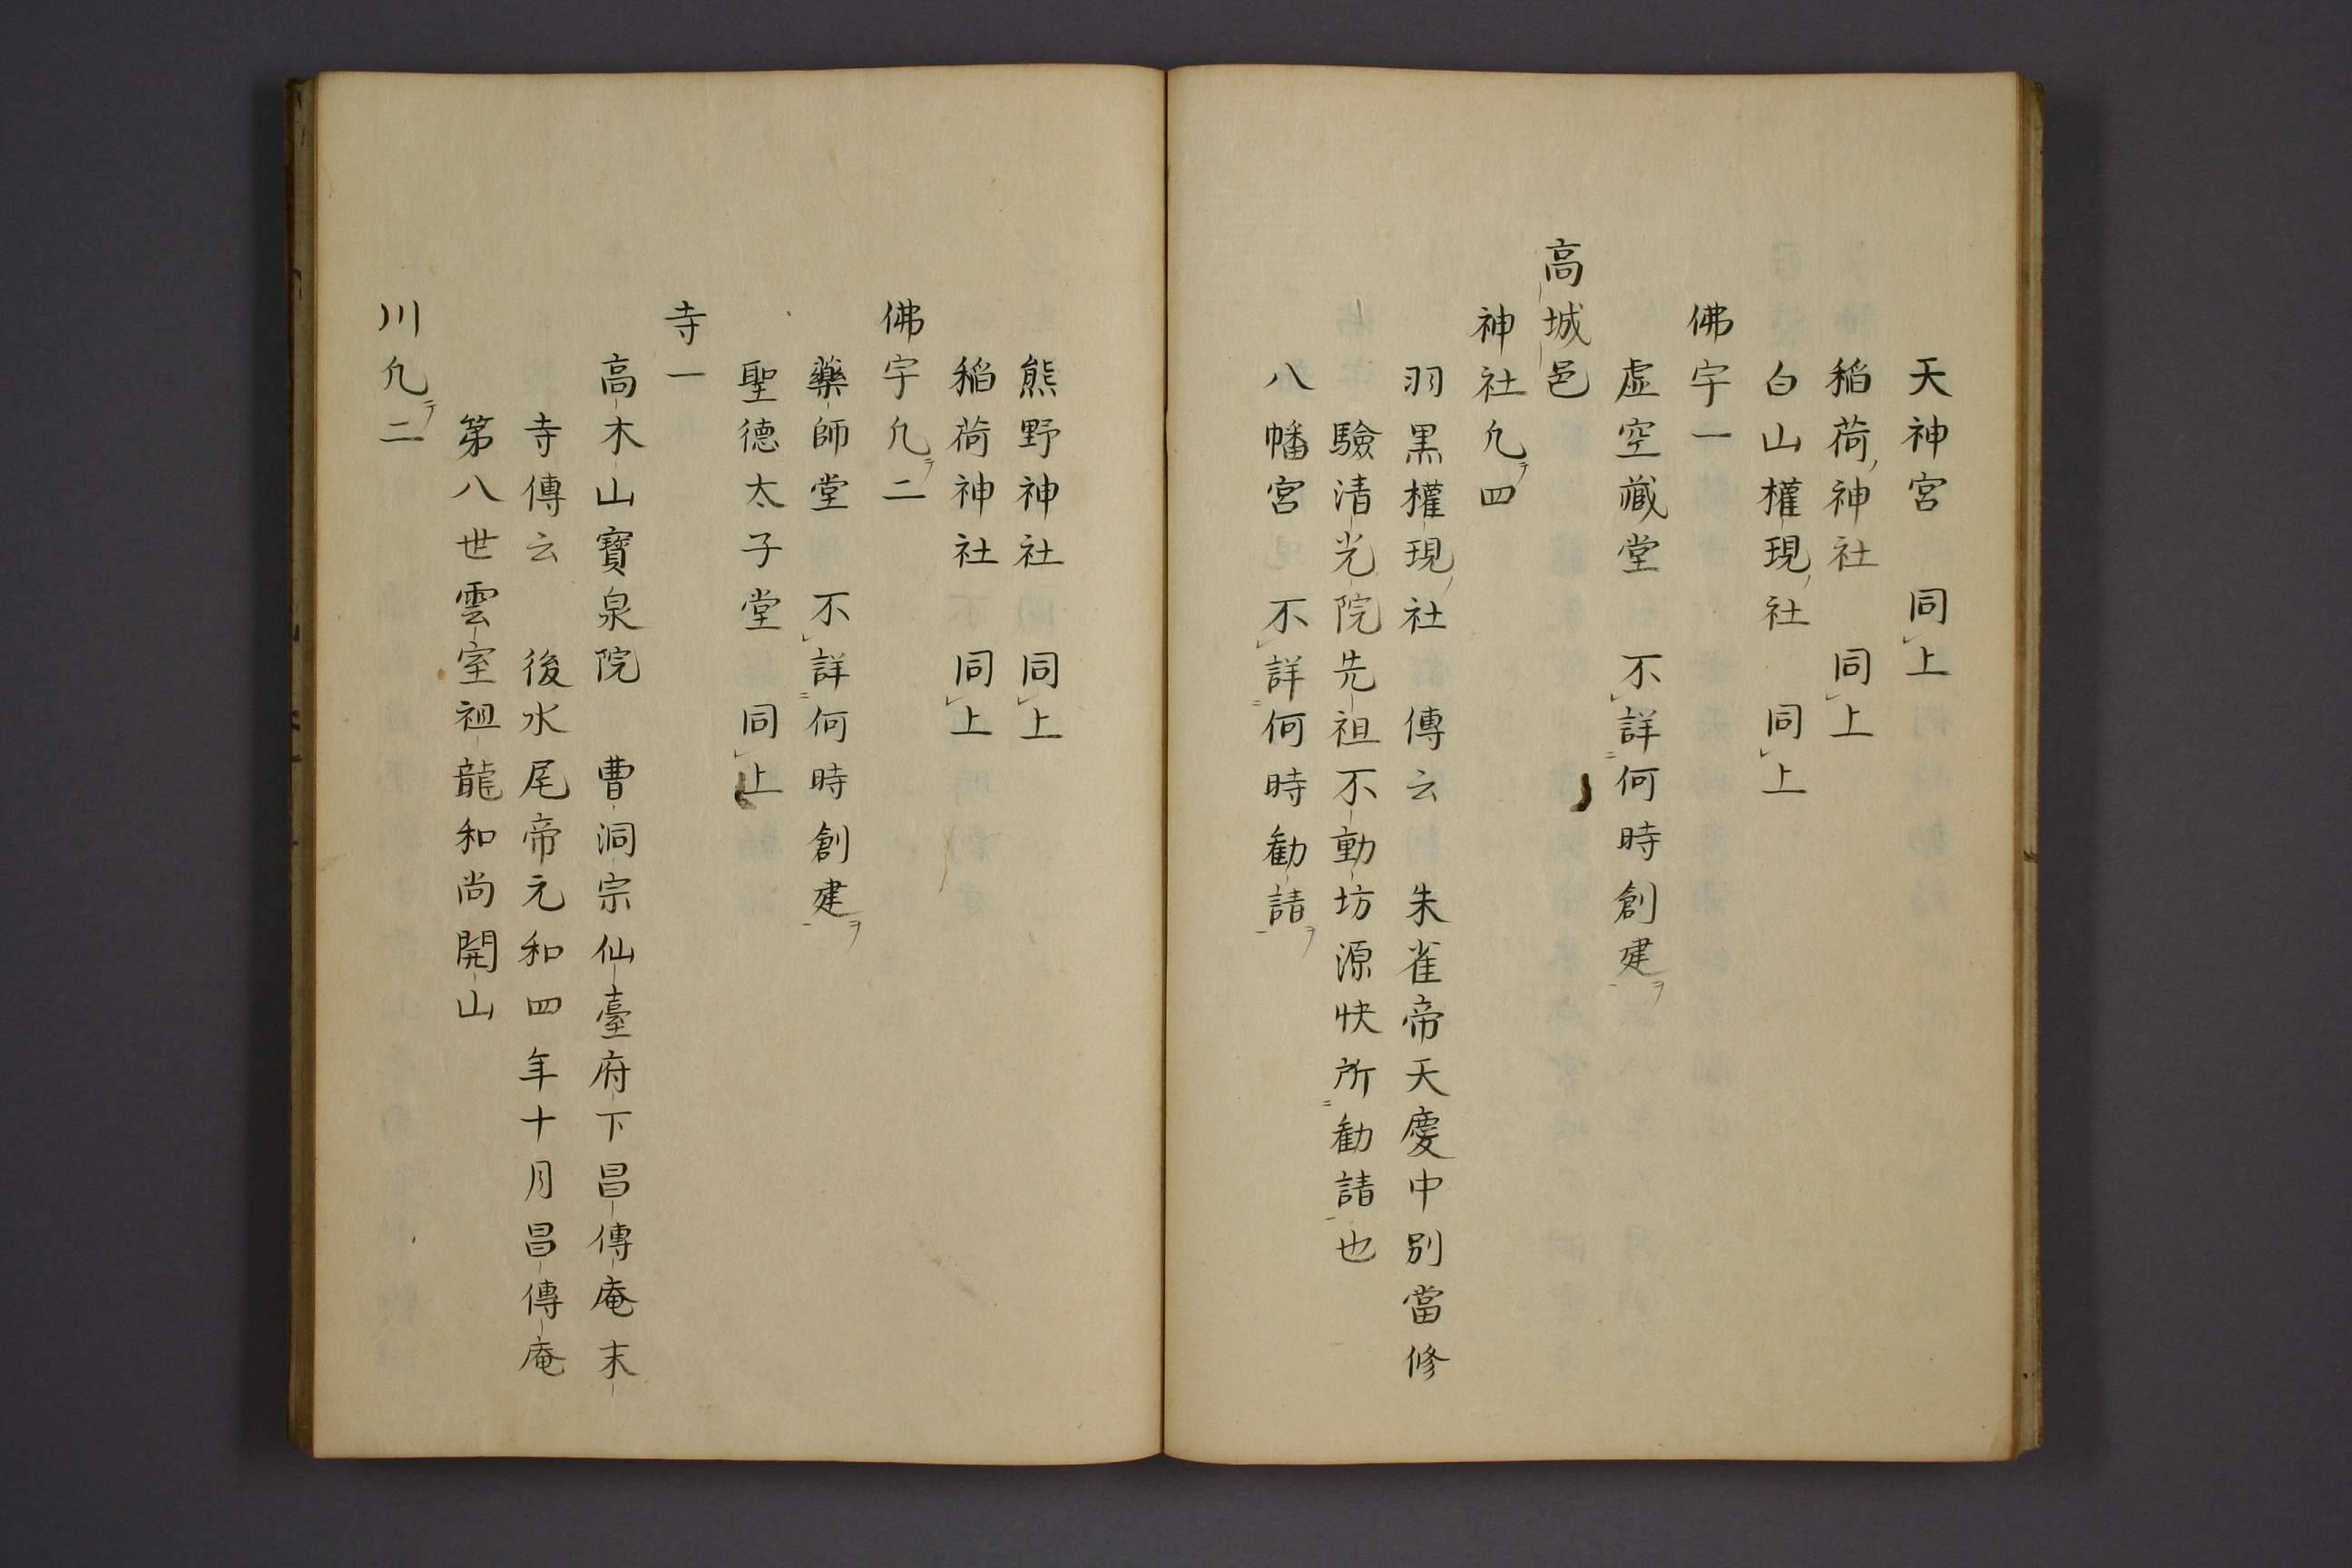 天神宮　同上
稲荷神社　同上
白山權現社　同上
佛宇一
虚空藏堂　不詳何時創建
高城邑
神社凢四
羽黒權現社　傳云　朱雀帝天慶中別當修
驗清光院先祖不動坊源快所勸請也
八幡宮　不詳何時勸請
熊野神社　同上
稲荷神社　同上
佛宇凢二
藥師堂　不詳何時創建
聖德太子堂　同上
寺一
高木山寳泉院　曹洞宗仙臺府下昌傳庵末
寺傳云　後水尾帝元和四年十月昌傳庵
第八世雲室祖龍和尚開山
川凢二